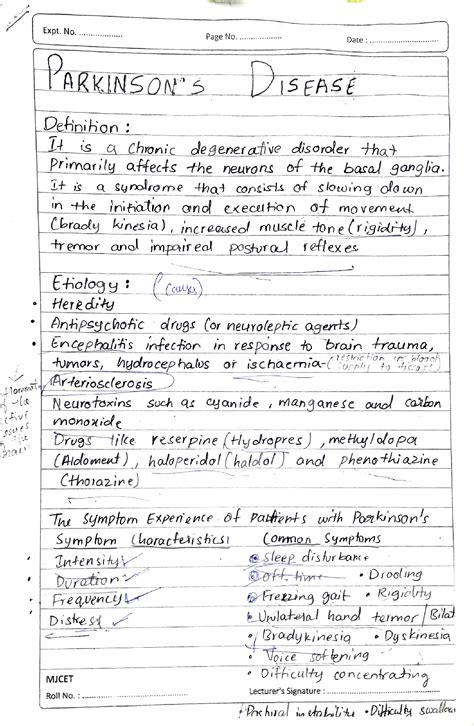 Expt. No. ..................
Page No. ..................
Date : ..................
PARKINSON'S DISEASE
Definition :
It is a chronic degenerative disorder that
Primarily affects the neurons of the basal ganglia.
It is a syndrome that consists of slowing down
in the initiation and execution of movement
(brady kinesia), increased muscle tone (rigidity),
tremor and impaired postural reflexes
Etiology : (causes)
• Heredity
• Antipsychotic drugs (or neuroleptic agents)
• Encephalitis infection in response to brain trauma,
tumors, hydrocephalus or ischaemia (restriction in blood
supply to tissues)
Arteriosclerosis
Neurotoxins such as cyanide, manganese and carbon
monoxide
Drugs like reserpine (Hydropres), methyldopa
(Aldoment), haloperidol (haldol) and phenothiazine
(thorazine)
The Symptom Experience of Patients with Parkinson's
Symptom Characteristics Common Symptoms
• Intensity • Sleep disturbance
• Duration • Off time • Drooling
• Frequency • Freezing gait • Rigidity
• Distress • Unilateral hand termor / Bilat
• Bradykinesia • Dyskinesia
• Voice softening
• Difficulty concentrating
MJCET
Roll No. : ..................
Lecturer's Signature : ..................
• Postural instability • Difficulty swallow